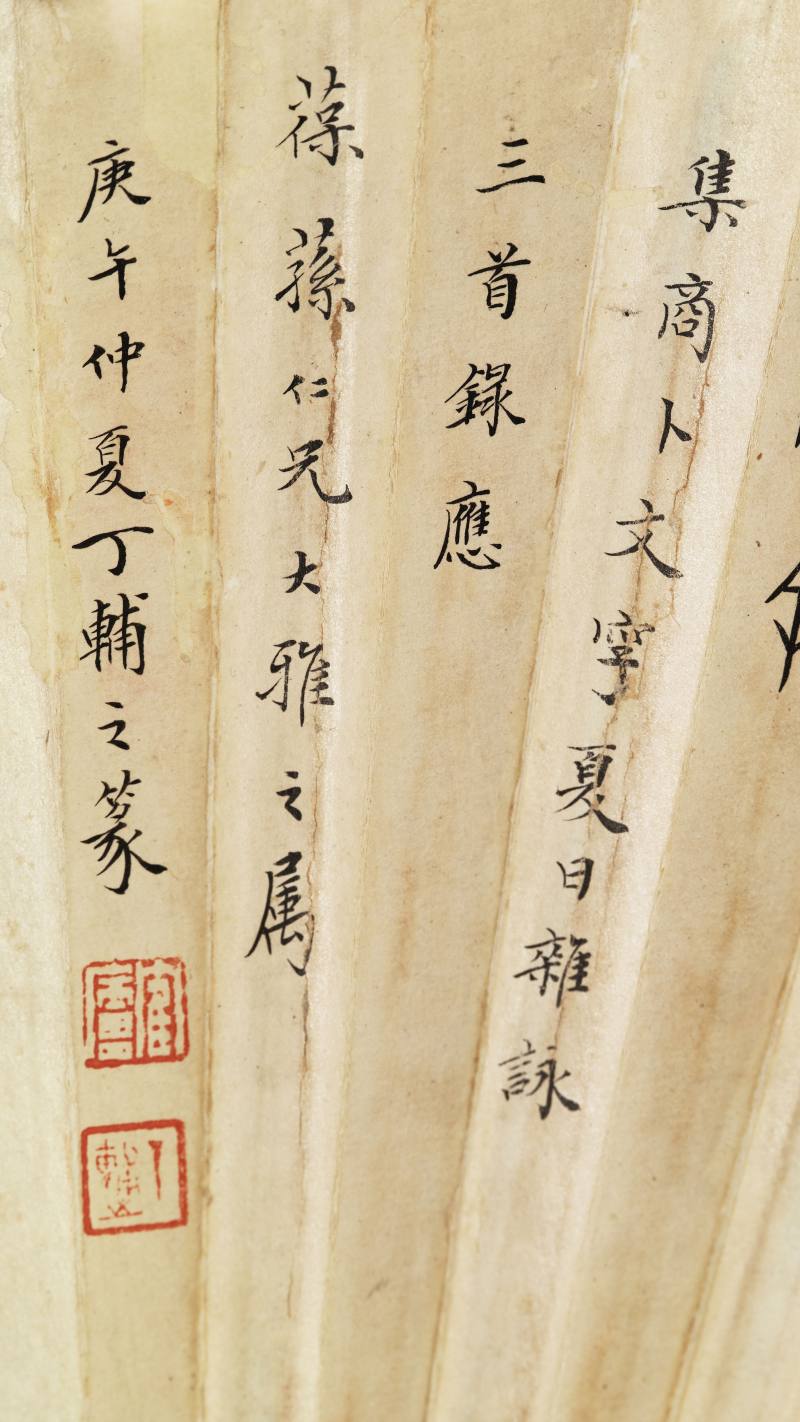 集商卜文字夏日雜詠
三首錄應
葆蓀仁兄大雅之属
庚午仲夏丁輔之篆